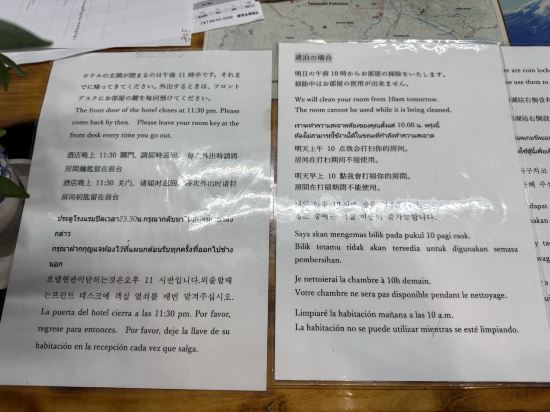 ホテルの玄関が閉まるのは午後 11 時半です。それま
でに帰ってきてください。外出するときは、フロント
デスクにお部屋の鍵を毎回預けてください。
The front door of the hotel closes at 11:30 pm. Please
come back by then. Please leave your room key at the
front desk every time you go out.
酒店晚上 11:30 關門，請届時返回。每次外出時請將
房間鑰匙留在前台
酒店晚上 11:30 关门，请届时返回。每次外出时请将
房间钥匙留在前台
ประตูโรงแรมปิดเวลา23.30น กรุณากลับมา
กล่าว
กรุณาฝากกุญแจห้องไว้ที่แผนกต้อนรับทุกครั้งที่ออกไปข้าง
นอก
호텔현관이닫히는것은오후 11 시반입니다.외출할때
는프런트 데스크에 객실 열쇠를 매번 맡겨주십시오.
La puerta del hotel cierra a las 11:30 pm. Por favor,
regrese para entonces. Por favor, deje la llave de su
habitación en la recepción cada vez que salga.
連泊の場合
明日の午前 10 時からお部屋の掃除をいたします。
掃除中はお部屋の使用が出来ません。
We will clean your room from 10am tomorrow.
The room cannot be used while it is being cleaned.
เราจะทำความสะอาดห้องของคุณตั้งแต่ 10.00 น. พรุ่งนี้
ห้องไม่สามารถใช้งานได้ในขณะที่กำลังทำความสะอาด
明天上午 10 点我会打扫你的房间。
房间在打扫期间不能使用。
明天早上 10 點我會打掃你的房間。
房間在打掃期間不能使用。
내일 아침 10 시에
Saya akan mengemas bilik pada pukul 10 pagi esok.
Bilik tetamu tidak akan tersedia untuk digunakan semasa
pembersihan.
Je nettoierai la chambre à 10h demain.
Votre chambre ne sera pas disponible pendant le nettoyage.
Limpiaré la habitación mañana a las 10 a.m.
La habitación no se puede utilizar mientras se esté limpiando.
are coin lock